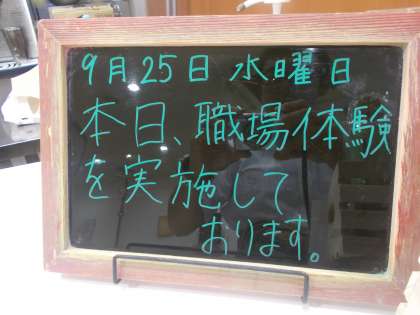 9月25日 水曜日
本日、職場体験
を実施して
おります。